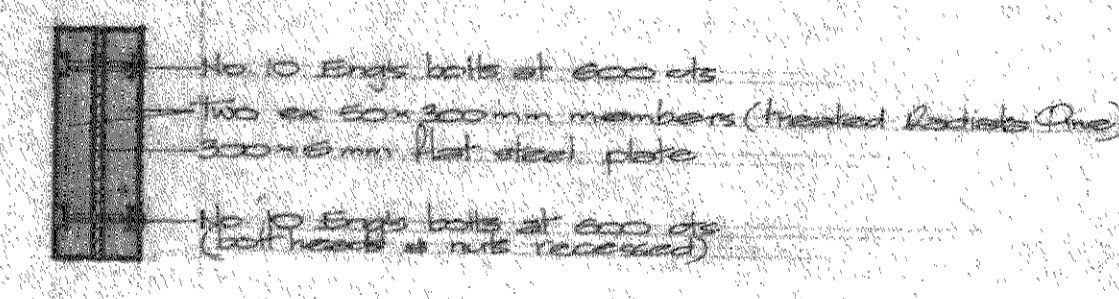 No 10 Eng's bolts at 600 cts
Two ex 50x300mm members (treated Radiata Pine)
300x6mm flat steel plate
No 10 Eng's bolts at 600 cts
(bolt heads & nuts recessed)